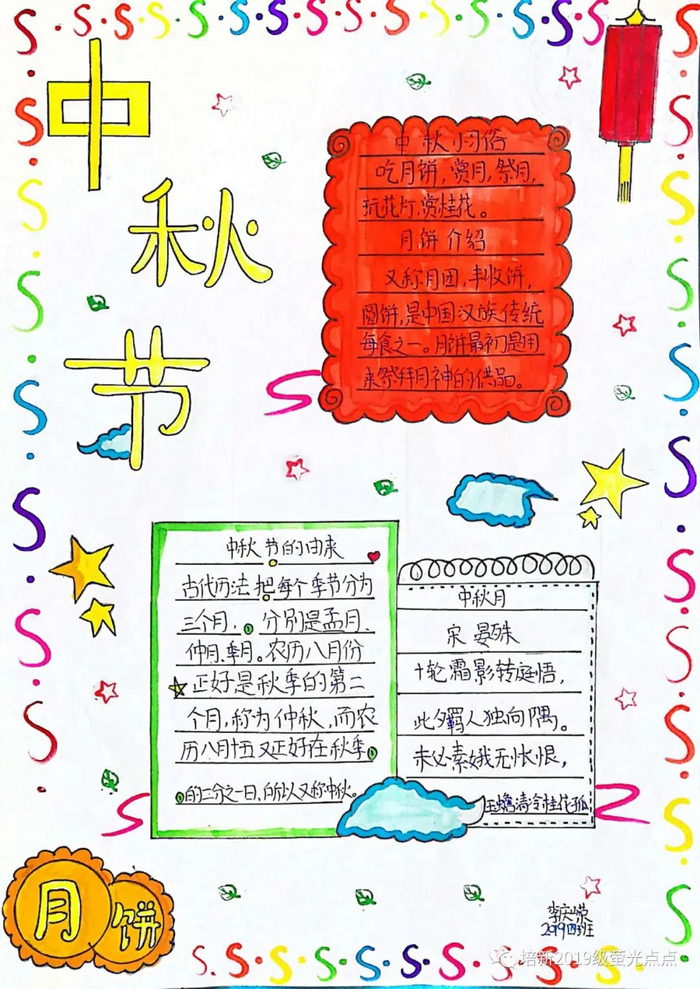 中
秋
节
中秋习俗
吃月饼,赏月,祭月,
玩花灯,赏桂花。
月饼介绍
又称月团,丰收饼,
圆饼,是中国汉族传统
每食之一。月饼最初是用
来祭拜月神的供品。
中秋节的由来
古代历法把每个季节分为
三个月,分别是孟月、
仲月、季月。农历八月份
正好是秋季的第二
个月,称为仲秋,而农
历八月十五又正好在秋季
的二分之一日,所以又称中秋。
中秋月
宋 晏殊
十轮霜影转庭悟,
此夕羁人独向隅。
未必素娥无怅恨,
玉蟾清冷桂花孤
月饼
李庆荣
2019四班
培新2019级萤光点点